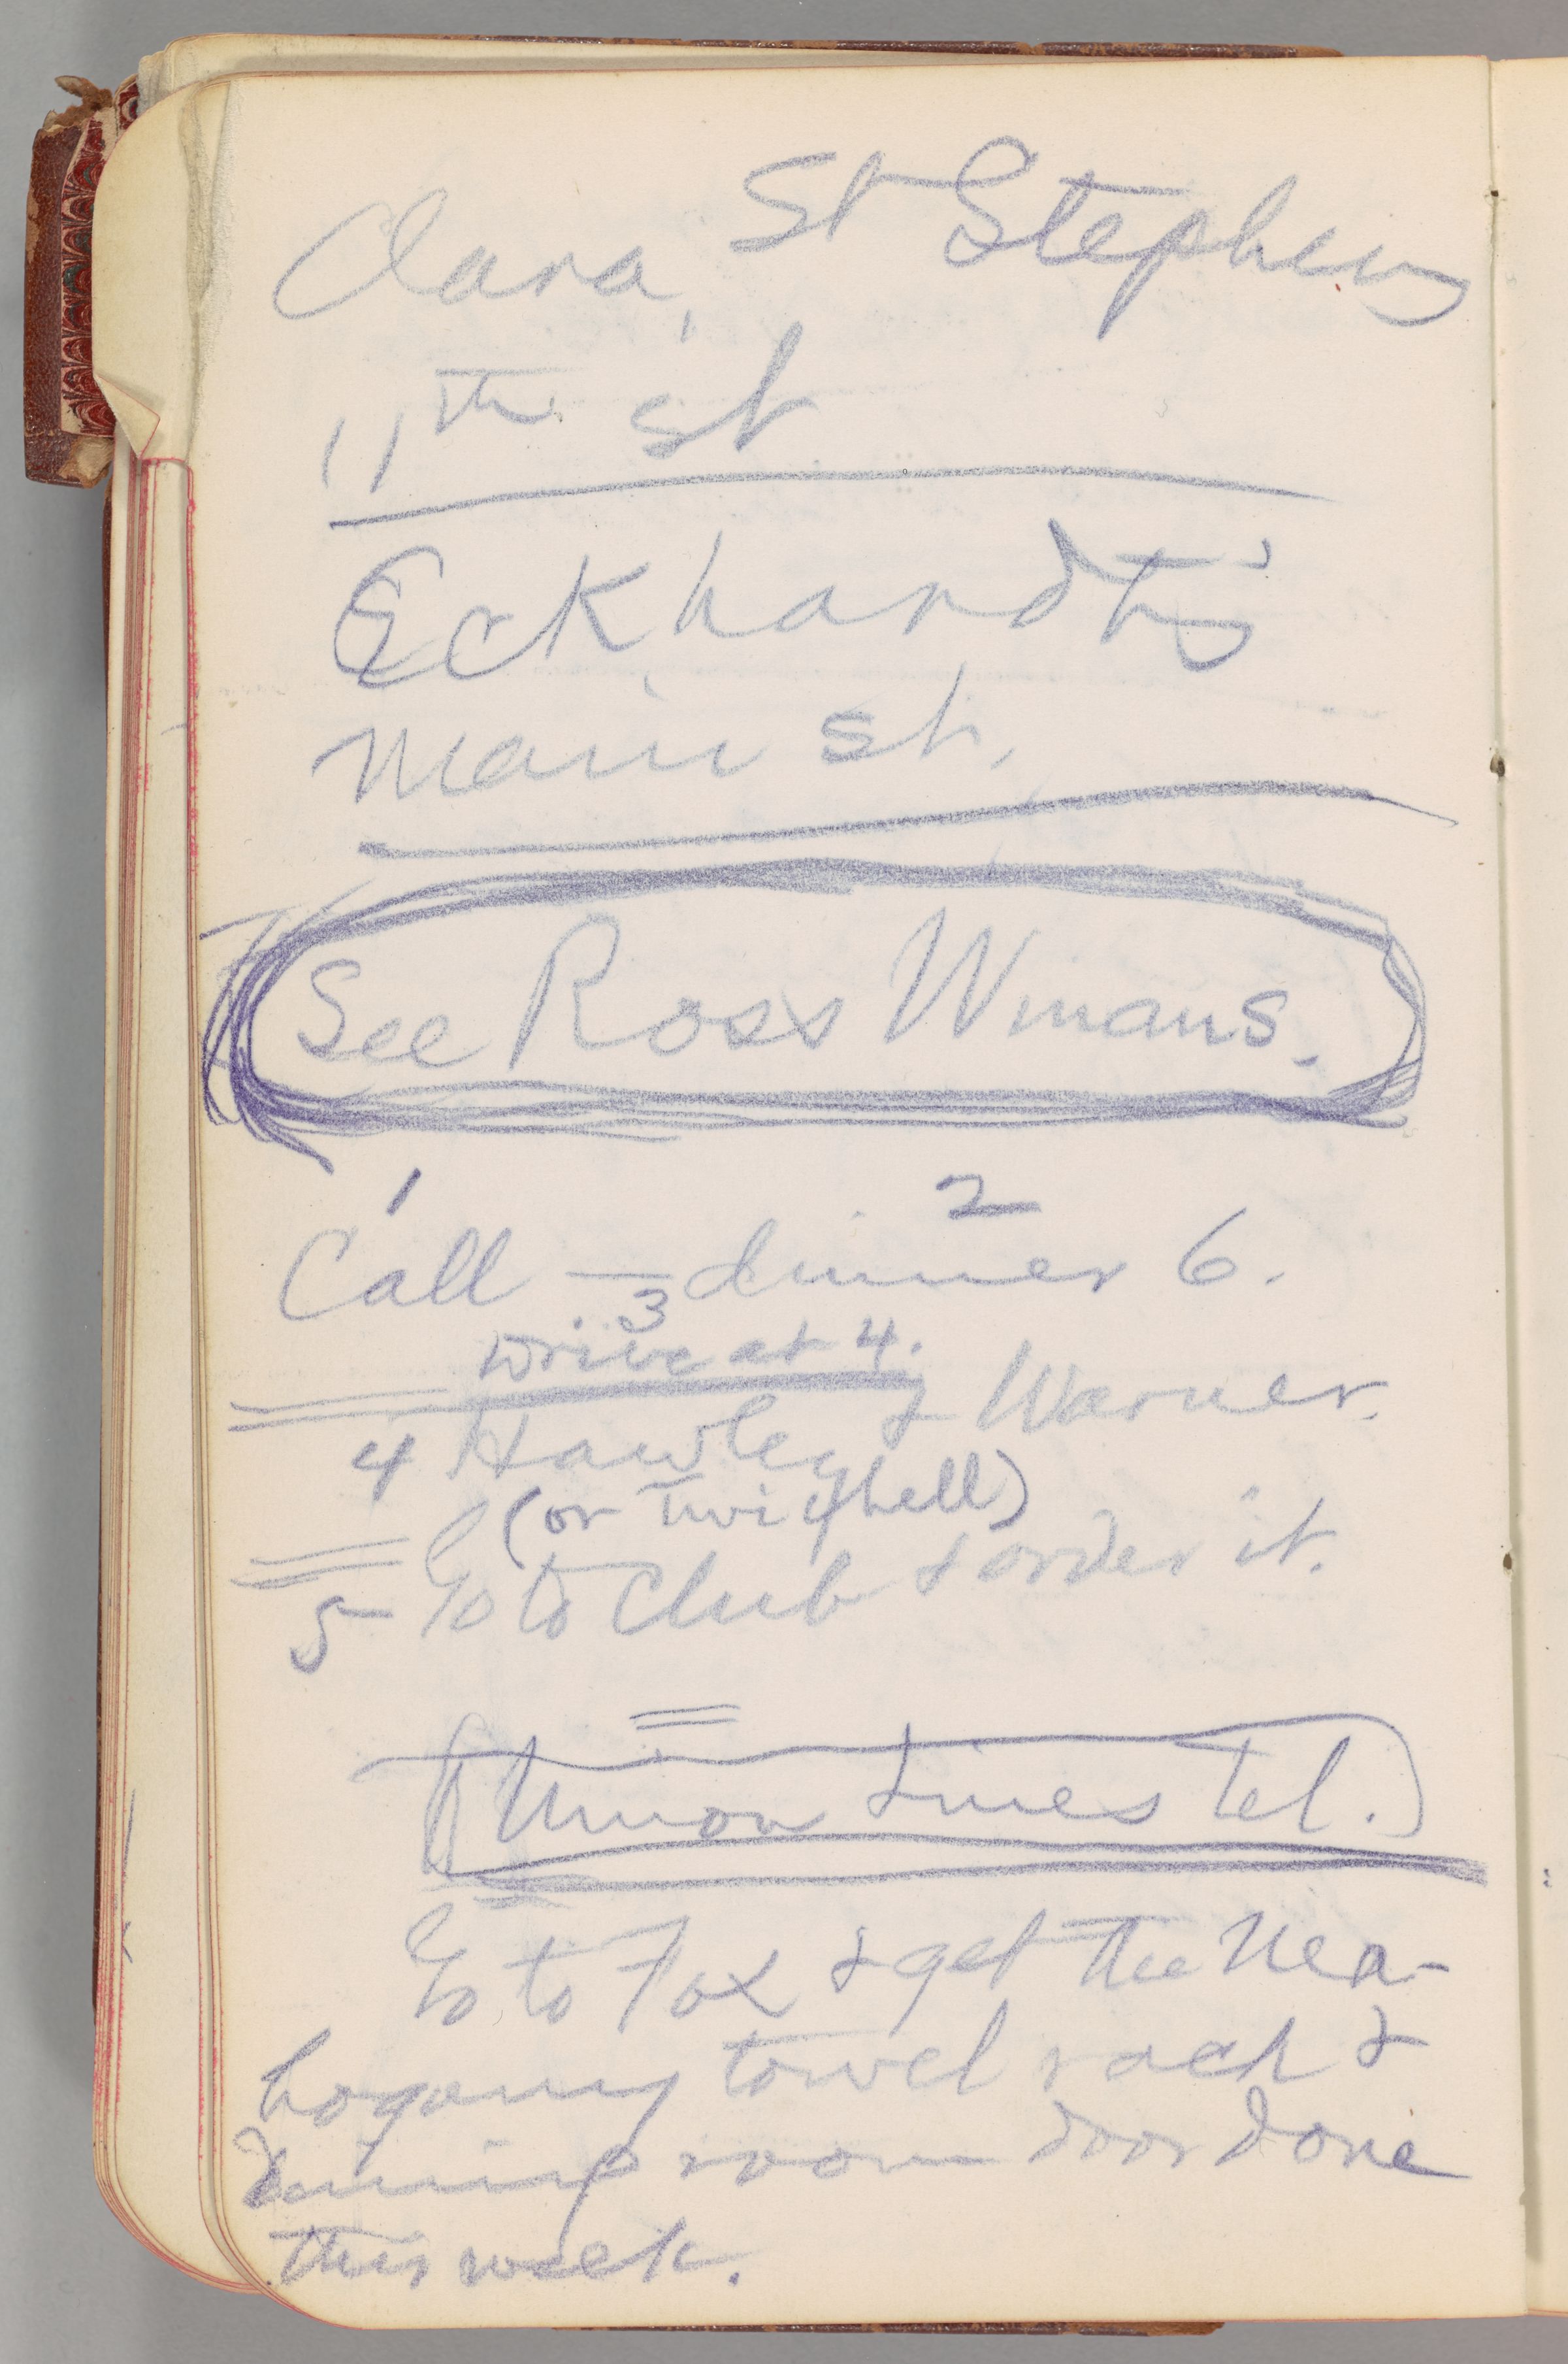 Clara, St Stephens
11th st
Eckhardt's
Main st.
See Ross Winans.
1 2
Call — dinner 6.
3
Drive at 4.
4 Hawley & Warner.
(or Twichell)
5 Go to Club & order it.
(Union Lines Tel.)
Go to Fox & get the Ma-
hogany towel rack &
dining room door done
this week.